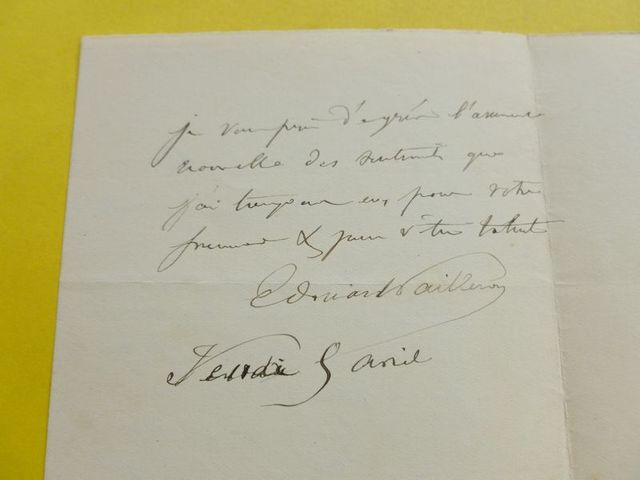 je vous prie d'agréer l'assurance
nouvelle des sentiments que
j'ai toujours eus pour votre
personne & pour votre talent
Edouard Pailleron
5 avril